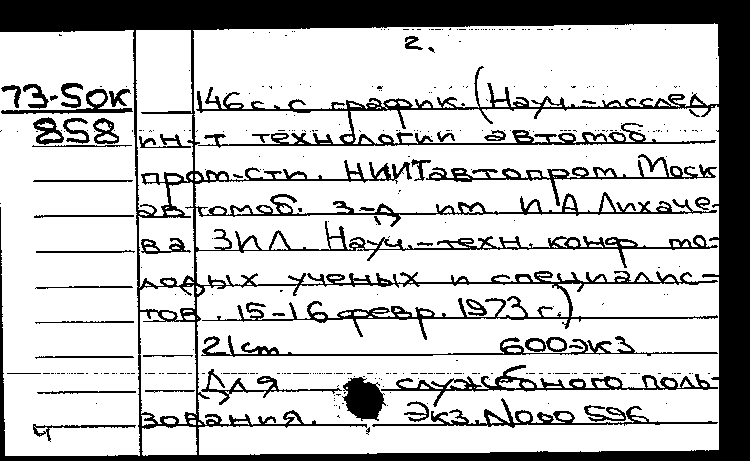 2.
73-5ОК 146 с. с график. (Науч.-исслед.
858 ин-т технологии автомоб.
пром-сти. НИИТавтопром. Моск
автомоб. з-д им. И.А. Лихаче-
ва. ЗИЛ. Науч.-техн. конф. мо-
лодых ученых и специалис-
тов. 15-16 февр. 1973 г.).
21 ст. 600 экз
Для служебного поль-
ч зования. Экз. №000596.